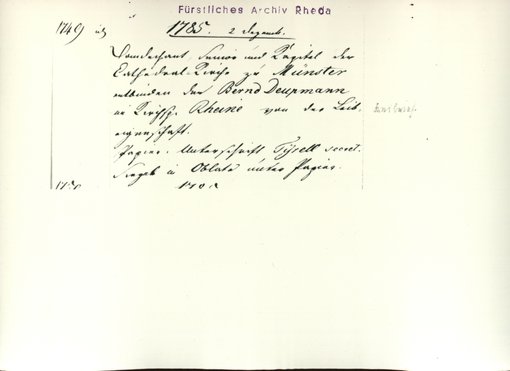 Fürstliches Archiv Rheda
1749) 1785. 2 Dezemb.
Domdechant, Senior und Kapitel der
Cathedral-Kirche zu Münster
entbinden den Bernd Deupmann
im Kirchsp. Rheine von der Leib-
eigenschaft.
Papier. Unterschrift Tÿrell secret.
Siegel in Oblate unter Papier.